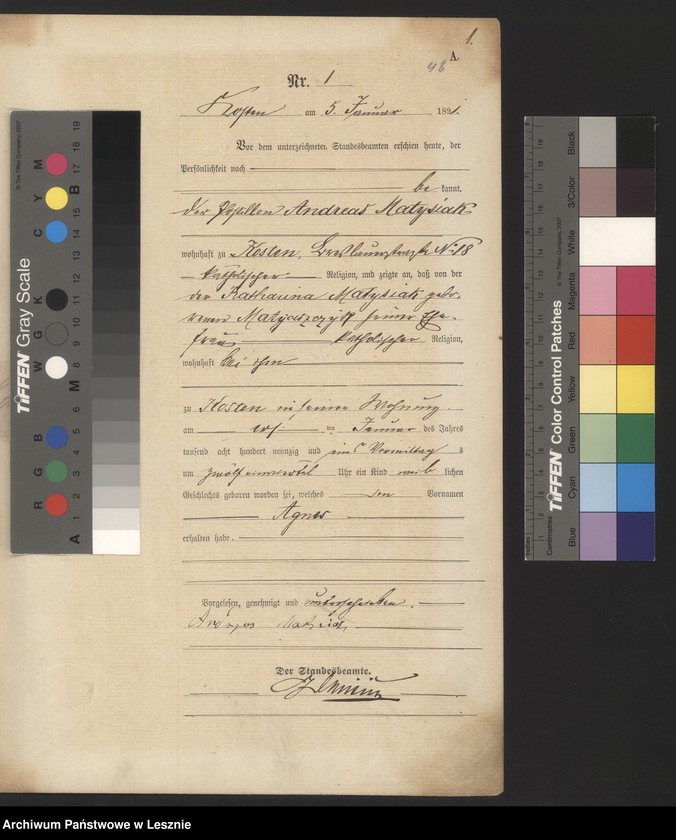 1.
48 A.
Nr. 1
Kosten am 5. Januar 1891.
Vor dem unterzeichneten Standesbeamten erschien heute, der
Persönlichkeit nach
be kannt,
der Andreas Matysiak
wohnhaft zu Kosten, Breslauerstraße No 18
katholischer Religion, und zeigte an, daß von der
der Katharina Matysiak gebo-
renen seiner Ehe-
frau katholischer Religion,
wohnhaft bei ihm
zu Kosten in seiner Wohnung
am ersten Januar des Jahres
tausend acht hundert neunzig und eins Vormittags
um zwölf einviertel Uhr ein Kind weib lichen
Geschlechts geboren worden sei, welches den Vornamen
Agnes
erhalten habe.
Vorgelesen, genehmigt und unterschrieben.
Der Standesbeamte.
TIFFEN Gray Scale
© The Tiffen Company, 2007
R G B W G K C Y M
A 1 2 3 4 5 6 M 8 9 10 11 12 13 14 15 B 17 18 19
TIFFEN Color Control Patches
© The Tiffen Company, 2007
Centimetres
Blue Cyan Green Yellow Red Magenta White 3/Color Black
Archiwum Państwowe w Lesznie